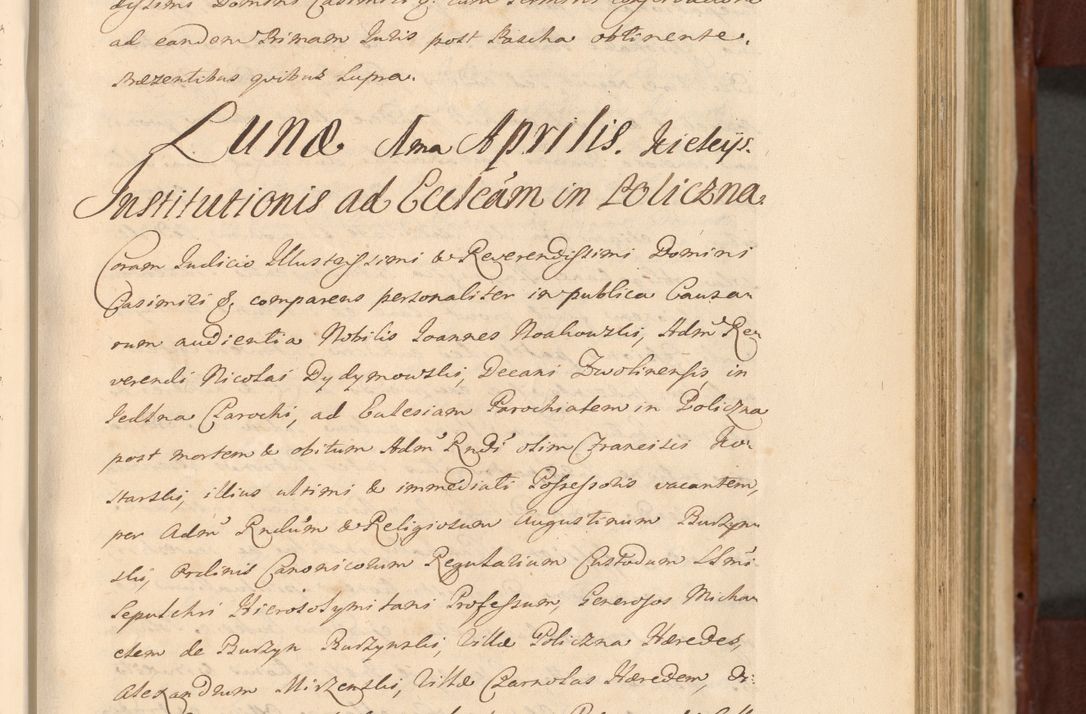 ad eandem Primam Juris post Pascha obtinente.
Præzentibus quibus supra.
Lunæ 1ma Aprilis. Kielcijs.
Institutionis ad Ecclcám in Policzna.
Coram Judicio Illustrissimi & Reverendissimi Domini
Casimiri &. comparens personaliter in publica Causa-
rum audientia Nobilis Joannes Noakowski, Admˢ Re-
verendi Nicolai Dydymowski, Decani Zwolinensis, in
Jedlna Parochi, ad Eulesiam Parochialem in Policzna
post mortem & obitum Admˢ Rndi olim Francisci Ko-
starski, illius ultimi & immediati Possessoris vacantem,
per Admˢ Rndum & Religiosum Augustinum Burzyn-
ski, Ordinis Canonicorum Regularium Custodum SSmi
Sepulchri Hierosolymitani Professum, Generosos Micha-
elem de Burzyn Burzynski, Villæ Policzna Hæredes,
Alexandrum Mirzenski, Villæ Czarnolas Hæredem, &